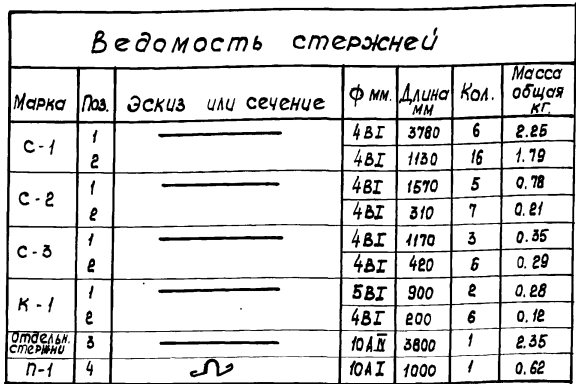 Ведомость стержней
Марка Поз. Эскиз или сечение Ф мм. Длина мм Кол. Масса общая кг.
С-1 1 4ВI 3780 6 2.25
2 4ВI 1130 16 1.79
С-2 1 4ВI 1570 5 0.78
2 4ВI 310 7 0.21
С-3 1 4ВI 1170 3 0.35
2 4ВI 420 6 0.29
К-1 1 5ВI 900 2 0.28
2 4ВI 200 6 0.12
Отдельн. стержни 3 10АIV 3800 1 2.35
П-1 4 10АI 1000 1 0.62